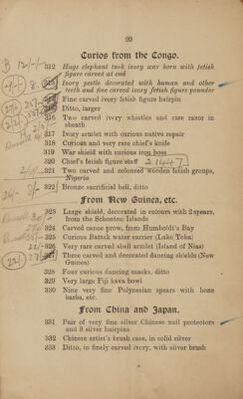 20
Curios from the Congo.
B 12/-/- 312 Huge elephant tusk ivory war horn with fetish
figure carved at end
313 Ivory pestle decorated with human and other
teeth and fine carved ivory fetish figure pounder
314 Fine carved ivory fetish figure hairpin
315 Ditto, larger
316 Two carved ivory whistles and rare razor in
sheath
317 Ivory armlet with curious native repair
318 Curious and very rare chief's knife
319 War shield with curious iron boss
320 Chief's fetish figure staff 21447
321 Two carved and coloured wooden fetish groups,
Nigeria
322 Bronze sacrificial bell, ditto
From New Guinea, etc.
323 Large shield, decorated in colours with 2 spears,
from the Schouten Islands
324 Carved canoe prow, from Humboldt's Bay
325 Curious Battak water carrier (Lake Toba)
22/- 326 Very rare carved shell armlet (Island of Nias)
22/- 327 Three carved and decorated dancing shields (New
Guinea)
328 Four curious dancing masks, ditto
329 Very large Fiji kava bowl
330 Nine very fine Polynesian spears with bone
barbs, etc.
From China and Japan.
331 Pair of very fine silver Chinese nail protectors
and 3 silver hairpins
332 Chinese artist's brush case, in solid silver
333 Ditto, in finely carved ivory, with silver brush